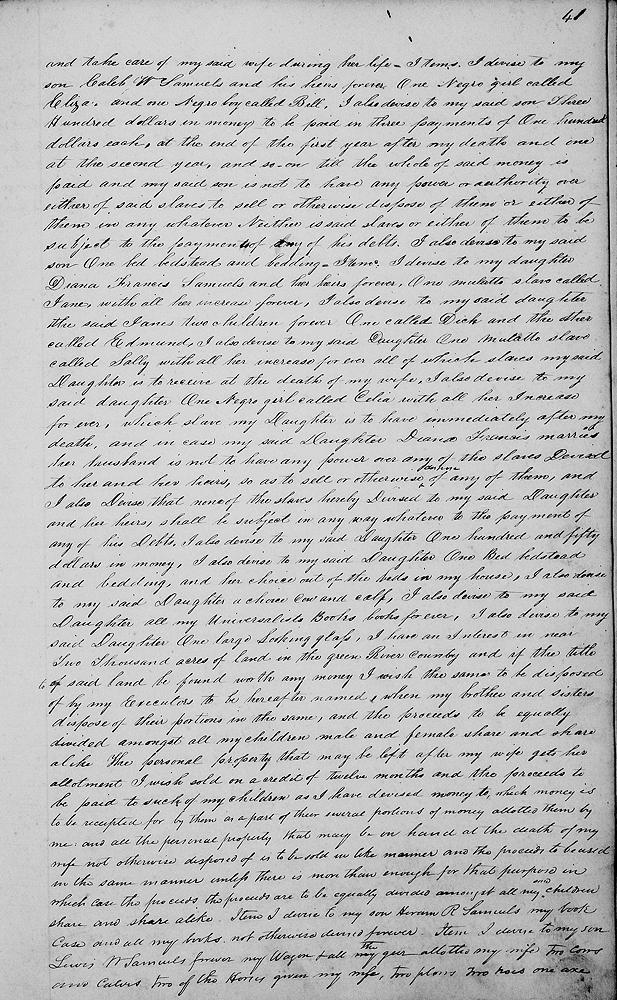 41
and take care of my said wife during her life - Items. I devise to my
son Caleb W Samuels and his heirs forever, One Negro girl called
Eliza, and one Negro boy called Bill, I also devise to my said son Three
Hundred dollars in money to be paid in three payments of One hundred
dollars each, at the end of the first year after my death and one
at the second year, and so-on till the whole of said money is
paid and my said son is not to have any power or authority over
either of said slaves to sell or otherwise dispose of them or either of
them in any whatever Neither is said slaves or either of them to be
subject to the payment of any of his debts. I also devise to my said
son One bed bedstead and bedding - Item. I devise to my daughter
Diana Francis Samuels and her heirs forever, One mulatto slave called
Jane, with all her increase forever, I also devise to my said daughter
the said Janes two children forever One called Dick and the other
called Edmund, I also devise to my said Daughter One Mulatto slave
called Sally with all her increase for ever all of which slaves my said
Daughter is to receive at the death of my wife, I also devise to my
said daughter One Negro girl called Celia with all her Increase
for ever, which slave my Daughter is to have immediately after my
death, and in case my said Daughter Diana Francis marries
her husband is not to have any power over any of the slaves Devised
to her and her heirs, so as to sell or otherwise dispose of any of them, and
I also Devise that none of the slaves hereby Devised to my said Daughter
and her heirs, shall be subject in any way whatever to the payment of
any of his Debts, I also devise to my said Daughter One hundred and fifty
dollars in money, I also devise to my said Daughter One Bed bedstead
and bedding, and her choice out of the beds in my house, I also devise
to my said Daughter a choice Cow and calf, I also devise to my said
Daughter all my Universalists Books books for ever, I also devise to my
said Daughter One large Looking glass, I have an Interest in near
Two Thousand acres of land in the green River Country and if the title
to said land be found worth any money I wish the same to be disposed
of by my Executors to be hereafter named, when my brother and sisters
dispose of their portions in the same, and the proceeds to be equally
divided amongst all my children male and female share and share
alike The personal property that may be left after my wife gets her
allotment I wish sold on a credit of twelve months and the proceeds to
be paid to such of my children as I have devised money to, which money is
to be receipted for by them as a part of their several portions of money allotted them by
me: and all the personal property that may be on hand at the death of my
wife not otherwise disposed of is to be sold in like manner and the proceeds to be used
in the same manner unless there is more than enough for that purpose in
which case the proceeds the proceeds are to be equally divided amongst all my said children
share and share alike. Item I devise to my son R Samuels my book
Case and all my books not otherwise devised forever Item I devise to my son
Lewis W Samuels forever my Wagon & all the gear allotted my wife two Cows
and Calves, two of the Horses given my wife, two plows two hoes one axe